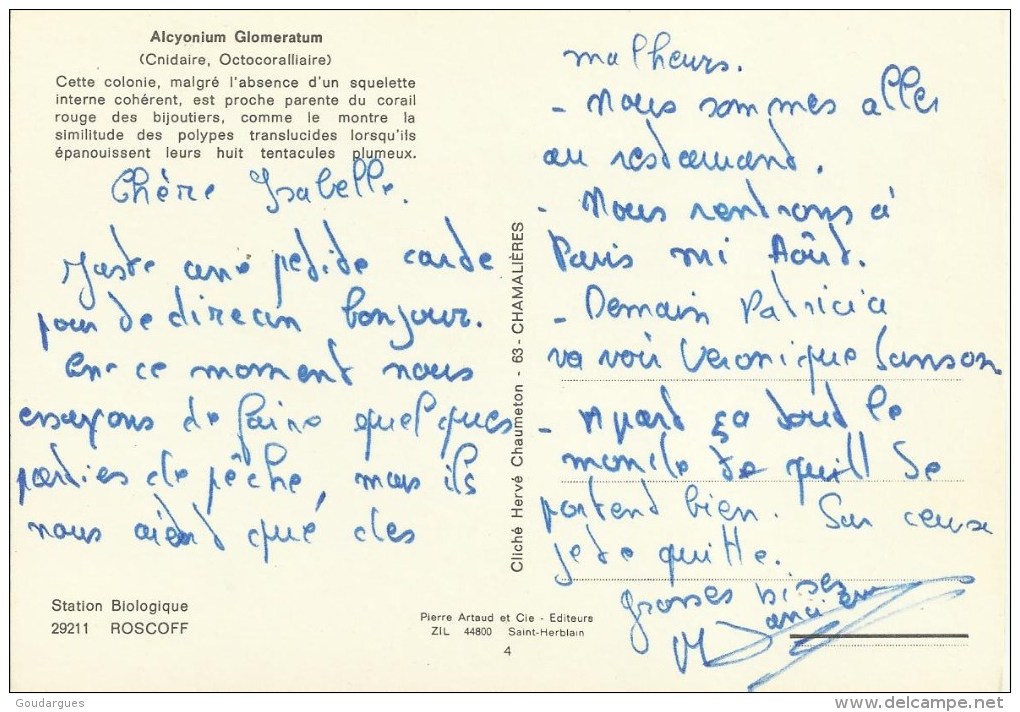 Alcyonium Glomeratum
(Cnidaire, Octocoralliaire)
Cette colonie, malgré l'absence d'un squelette
interne cohérent, est proche parente du corail
rouge des bijoutiers, comme le montre la
similitude des polypes translucides lorsqu'ils
épanouissent leurs huit tentacules plumeux.
Chère Isabelle.
Juste une petite carte
pour te dire un bonjour.
En ce moment nous
essayons de faire quelques
parties de pêche, mais ils
nous aient que des
Station Biologique
29211 ROSCOFF
Cliché Hervé Chaumeton - 63 - CHAMALIÈRES
Pierre Artaud et Cie - Editeurs
ZIL 44800 Saint-Herblain
4
malheurs.
- Nous sommes aller
au restaurant.
- Nous rentrons à
Paris mi Août.
- Demain Patricia
va voir Veronique Sanson
- Apart ça tout le
monde se
portent bien. Sur ceuse
je te quitte.
grosses bises
Goudargues
www.delcampe.net